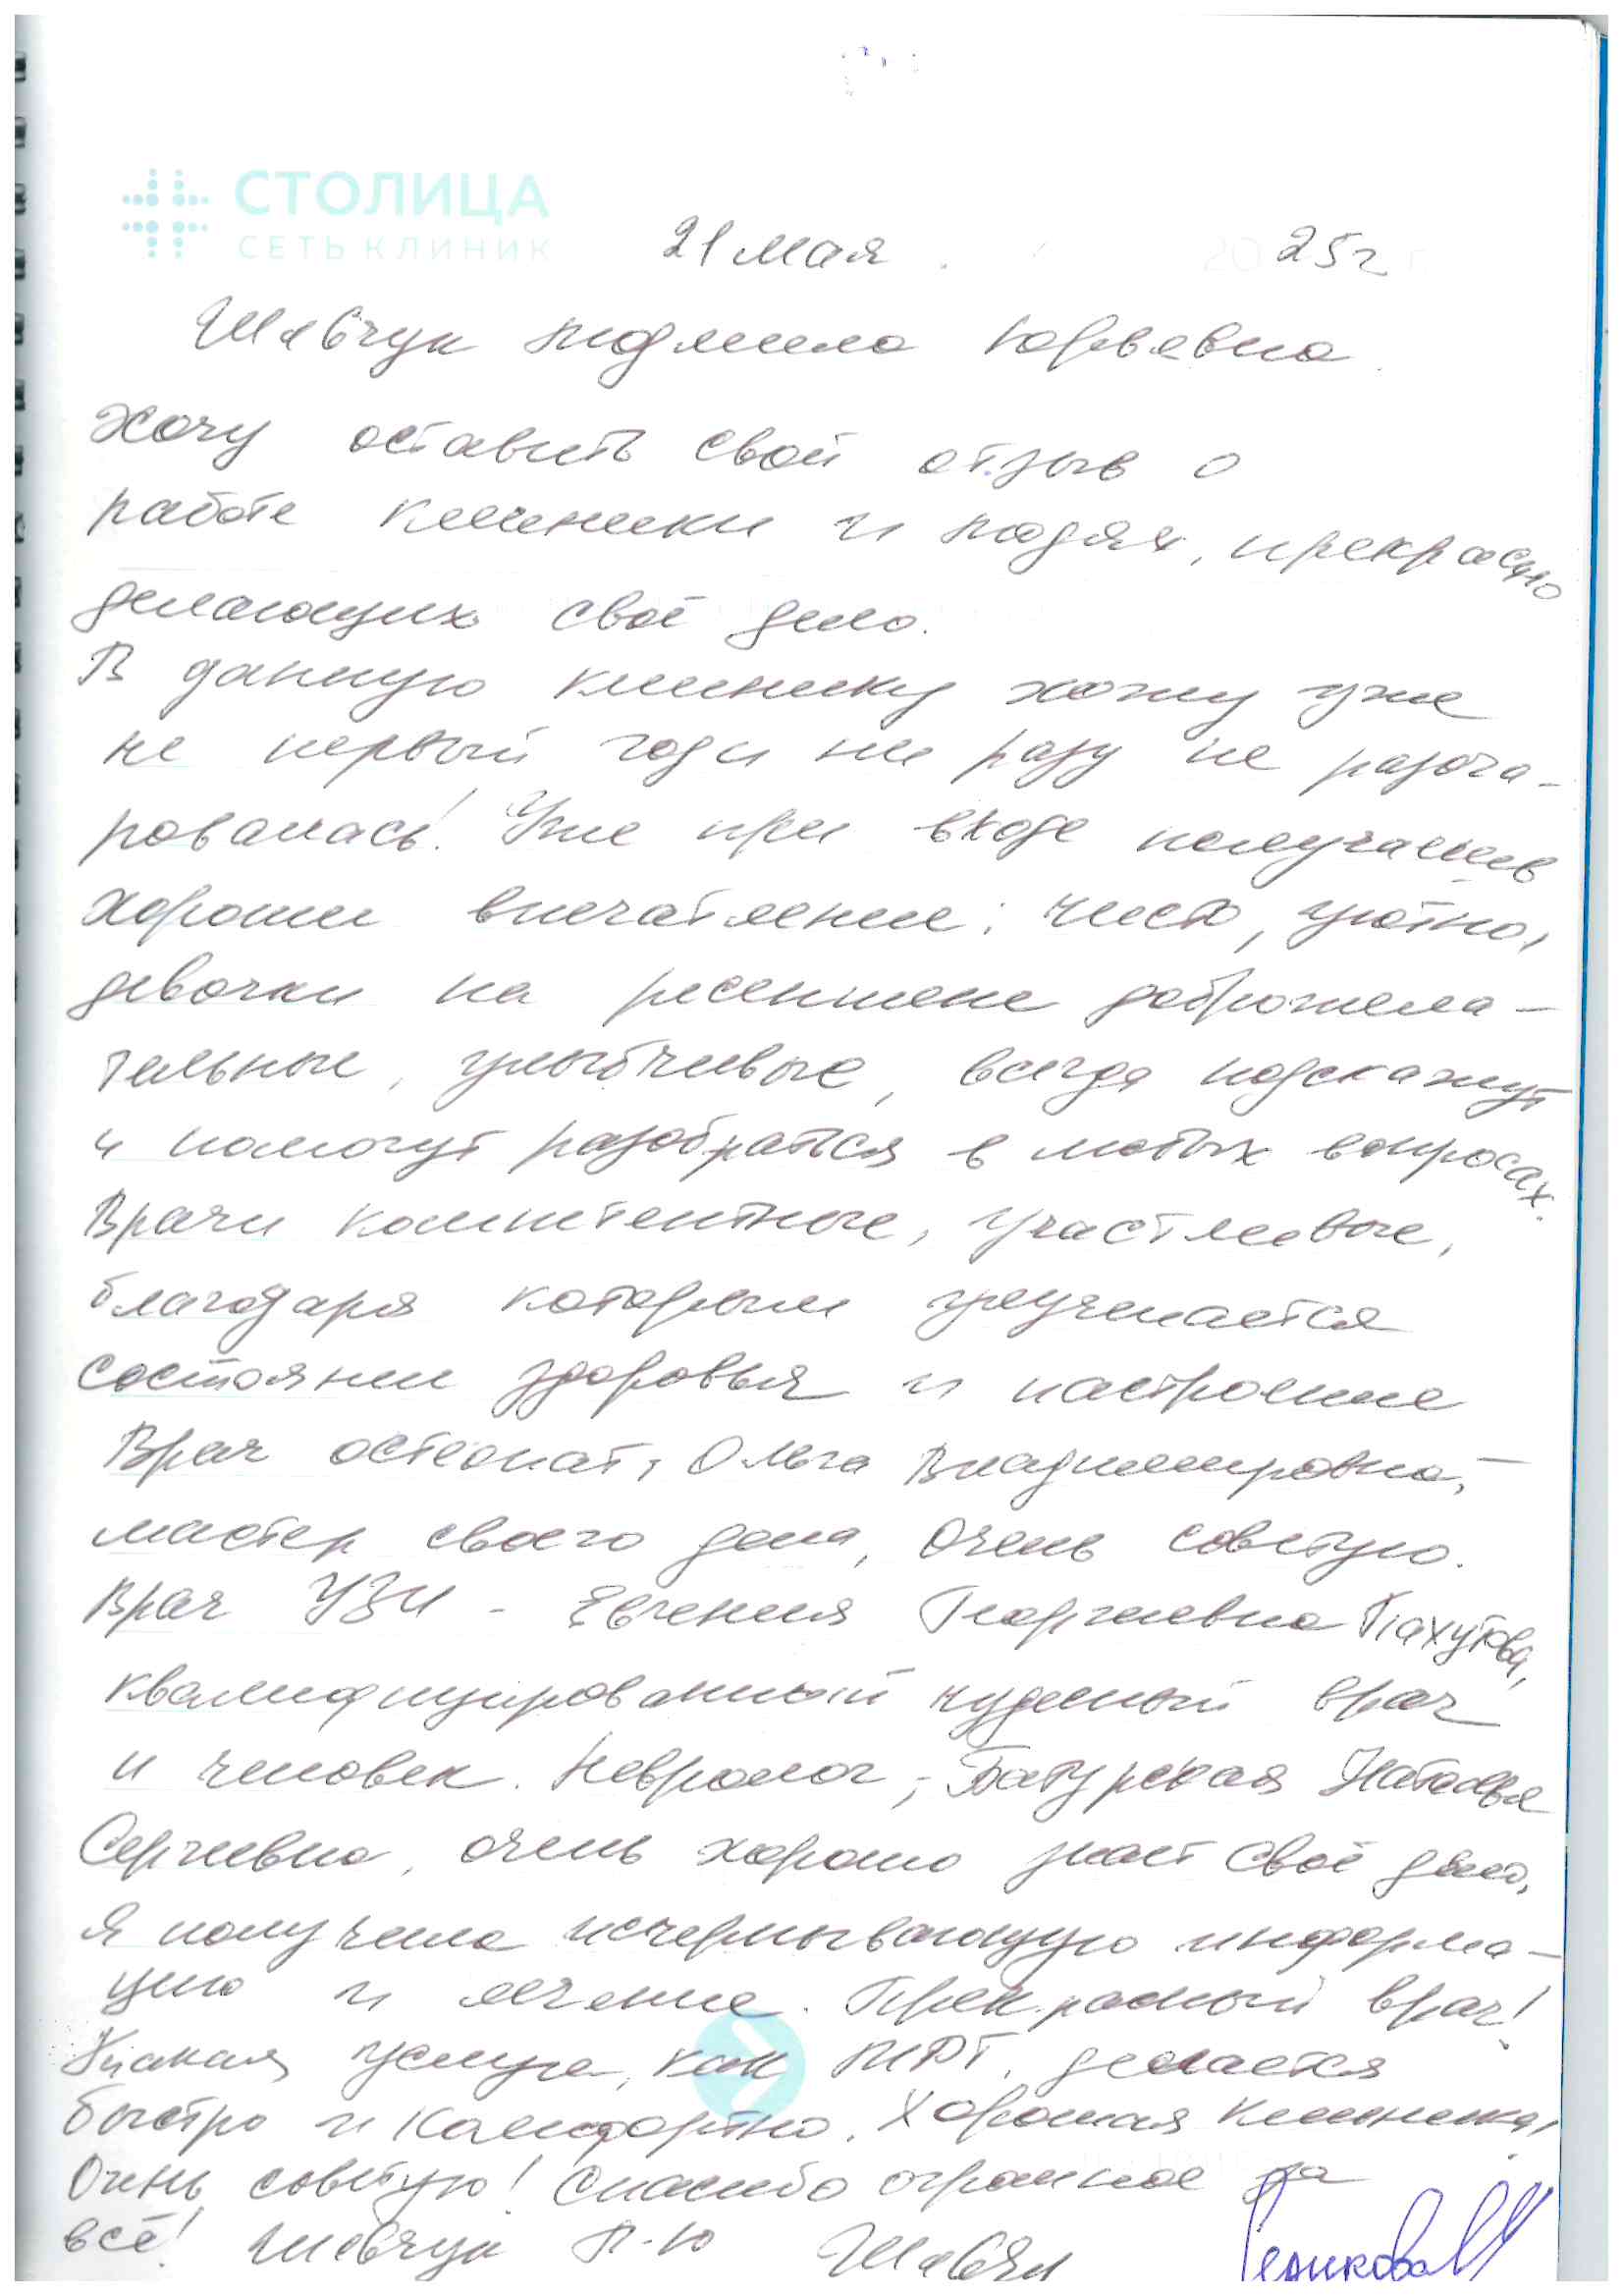 СТОЛИЦА
СЕТЬ КЛИНИК
21 мая 25г
Шевчук Людмила Юрьевна
Хочу оставить свой отзыв о
работе клиники и людях, прекрасно
делающих своё дело.
В данную клинику хожу уже
не первый год и ни разу не разоча-
ровалась! Уже при входе получаешь
хорошее впечатление: чисто, уютно,
девочки на ресепшене доброжела-
тельные, улыбчивые, всегда подскажут
и помогут разобраться в любых вопросах.
Врачи компетентные, участливые,
благодаря которым улучшается
состояние здоровья и настроение
Врач остеопат, Ольга Владимировна, -
мастер своего дела, очень советую.
Врач УЗИ - Евгения Георгиевна Пахутова,
квалифицированный чудесный врач
и человек. Невролог, - Батурская Наталья
Сергеевна, очень хорошо знает своё дело,
я получила исчерпывающую информа-
цию и лечение. Прекрасный врач!
услуга, как МРТ, делается
быстро и комфортно. Хорошая клиника,
Очень советую! Спасибо огромное за
всё! Шевчук Л.Ю